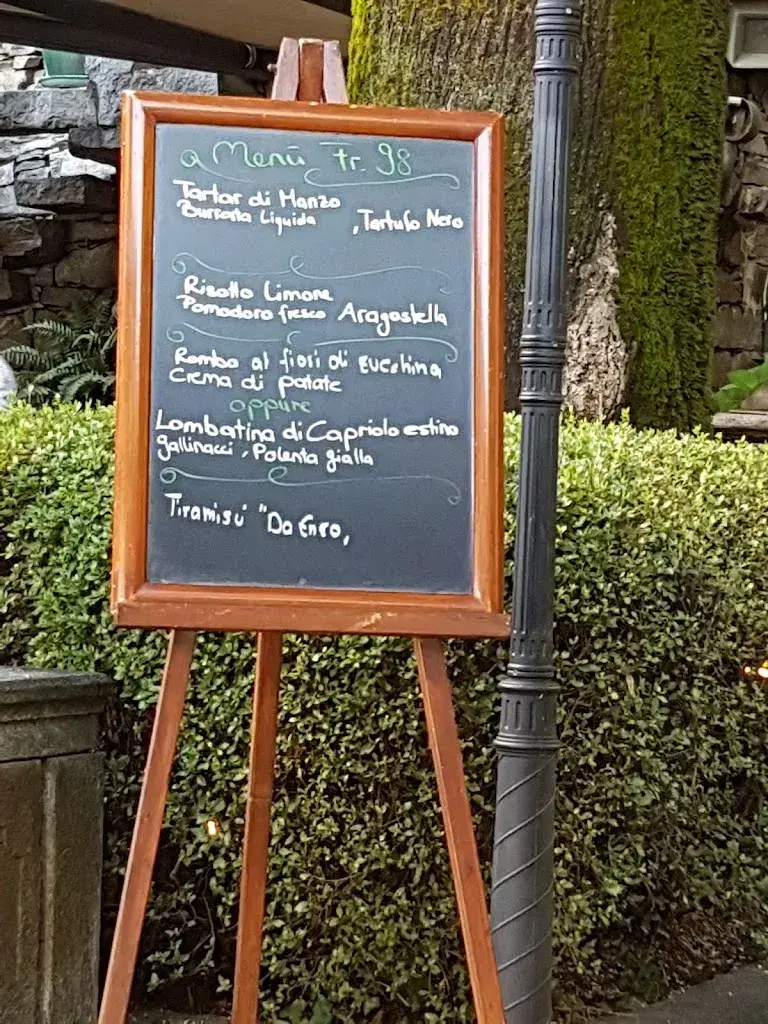 a Menü Fr. 98
Tartar di Manzo
Burrata Liquida , Tartufo Nero
Risotto Limone
Pomodoro fresco Aragostella
Rombo al fiori di zucchina
Crema di patate
oppure
Lombatina di Capriolo estino
gallinacci, Polenta gialla
Tiramisú "Da Enzo,